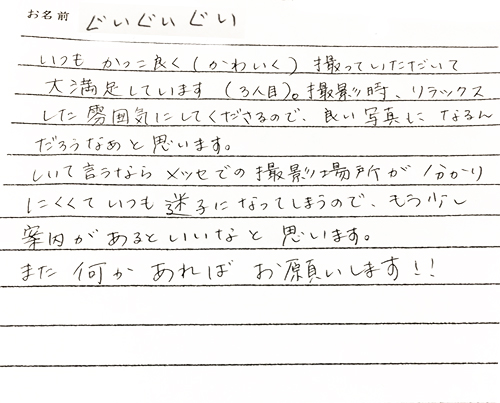 お名前 ぐいぐいぐい
いつも かっこ良く(かわいく) 撮っていただいて
大満足しています (3人目)。撮影時、リラックス
した雰囲気にしてくださるので、良い写真に なるん
だろうなあと思います。
しいて言うなら メッセでの撮影場所が分かり
にくくていつも迷子になってしまうので、もう少し
案内があるといいなと思います。
また 何か あれば お願いします!!